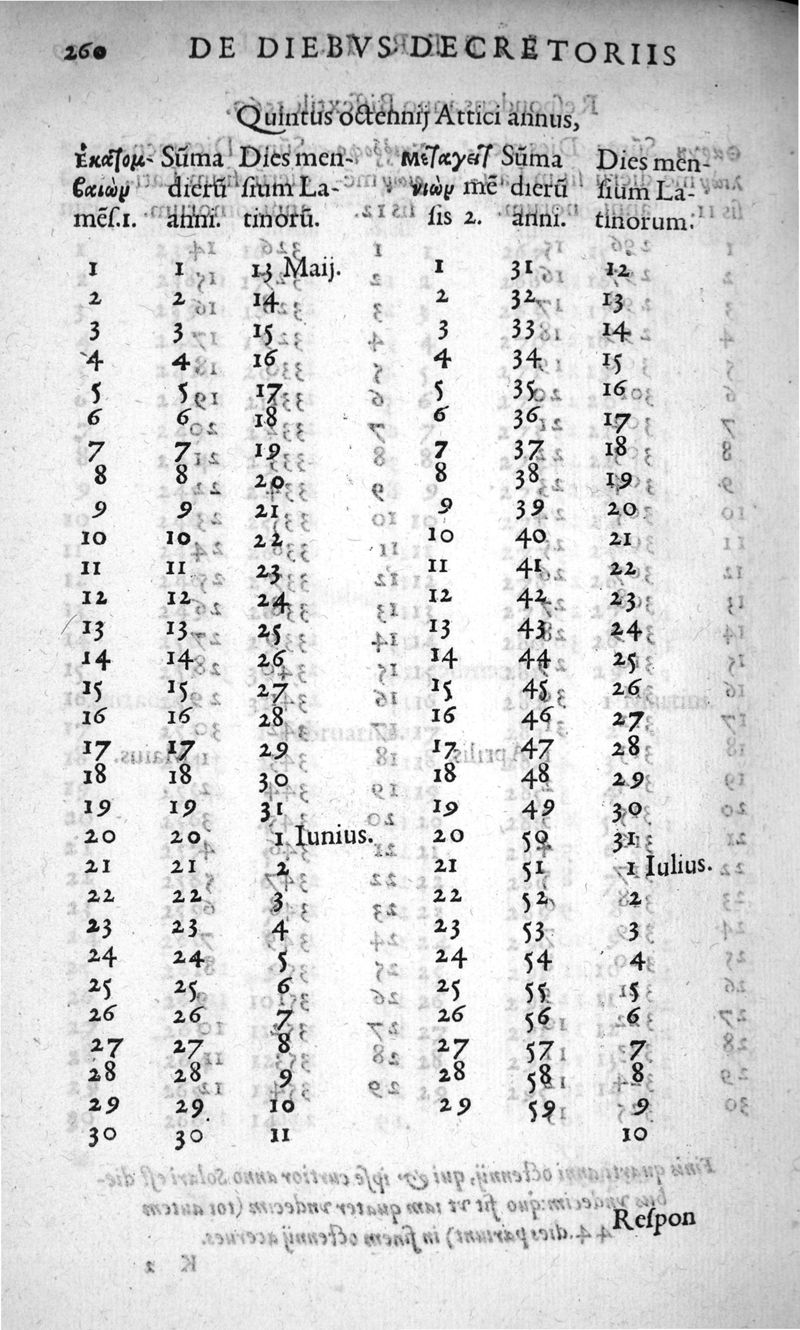 260 DE DIEBVS DECRETORIIS
Quintus octennij Attici annus,
ἑκατομ- Sūma Dies men- μεταγειτ Sūma Dies men-
βαιὼν dierū sium La- νιὼν mē dierū sium La-
mēs. 1. anni. tinorū. sis 2. anni. tinorum.
1 1 13 Maij. 1 31 12
2 2 14 2 32 13
3 3 15 3 33 14
4 4 16 4 34 15
5 5 17 5 35 16
6 6 18 6 36 17
7 7 19 7 37 18
8 8 20 8 38 19
9 9 21 9 39 20
10 10 22 10 40 21
11 11 23 11 41 22
12 12 24 12 42 23
13 13 25 13 43 24
14 14 26 14 44 25
15 15 27 15 45 26
16 16 28 16 46 27
17 17 29 17 47 28
18 18 30 18 48 29
19 19 31 19 49 30
20 20 1 Iunius. 20 50 31
21 21 2 21 51 1 Iulius.
22 22 3 22 52 2
23 23 4 23 53 3
24 24 5 24 54 4
25 25 6 25 55 5
26 26 7 26 56 6
27 27 8 27 57 7
28 28 9 28 58 8
29 29 10 29 59 9
30 30 11 10
Respon